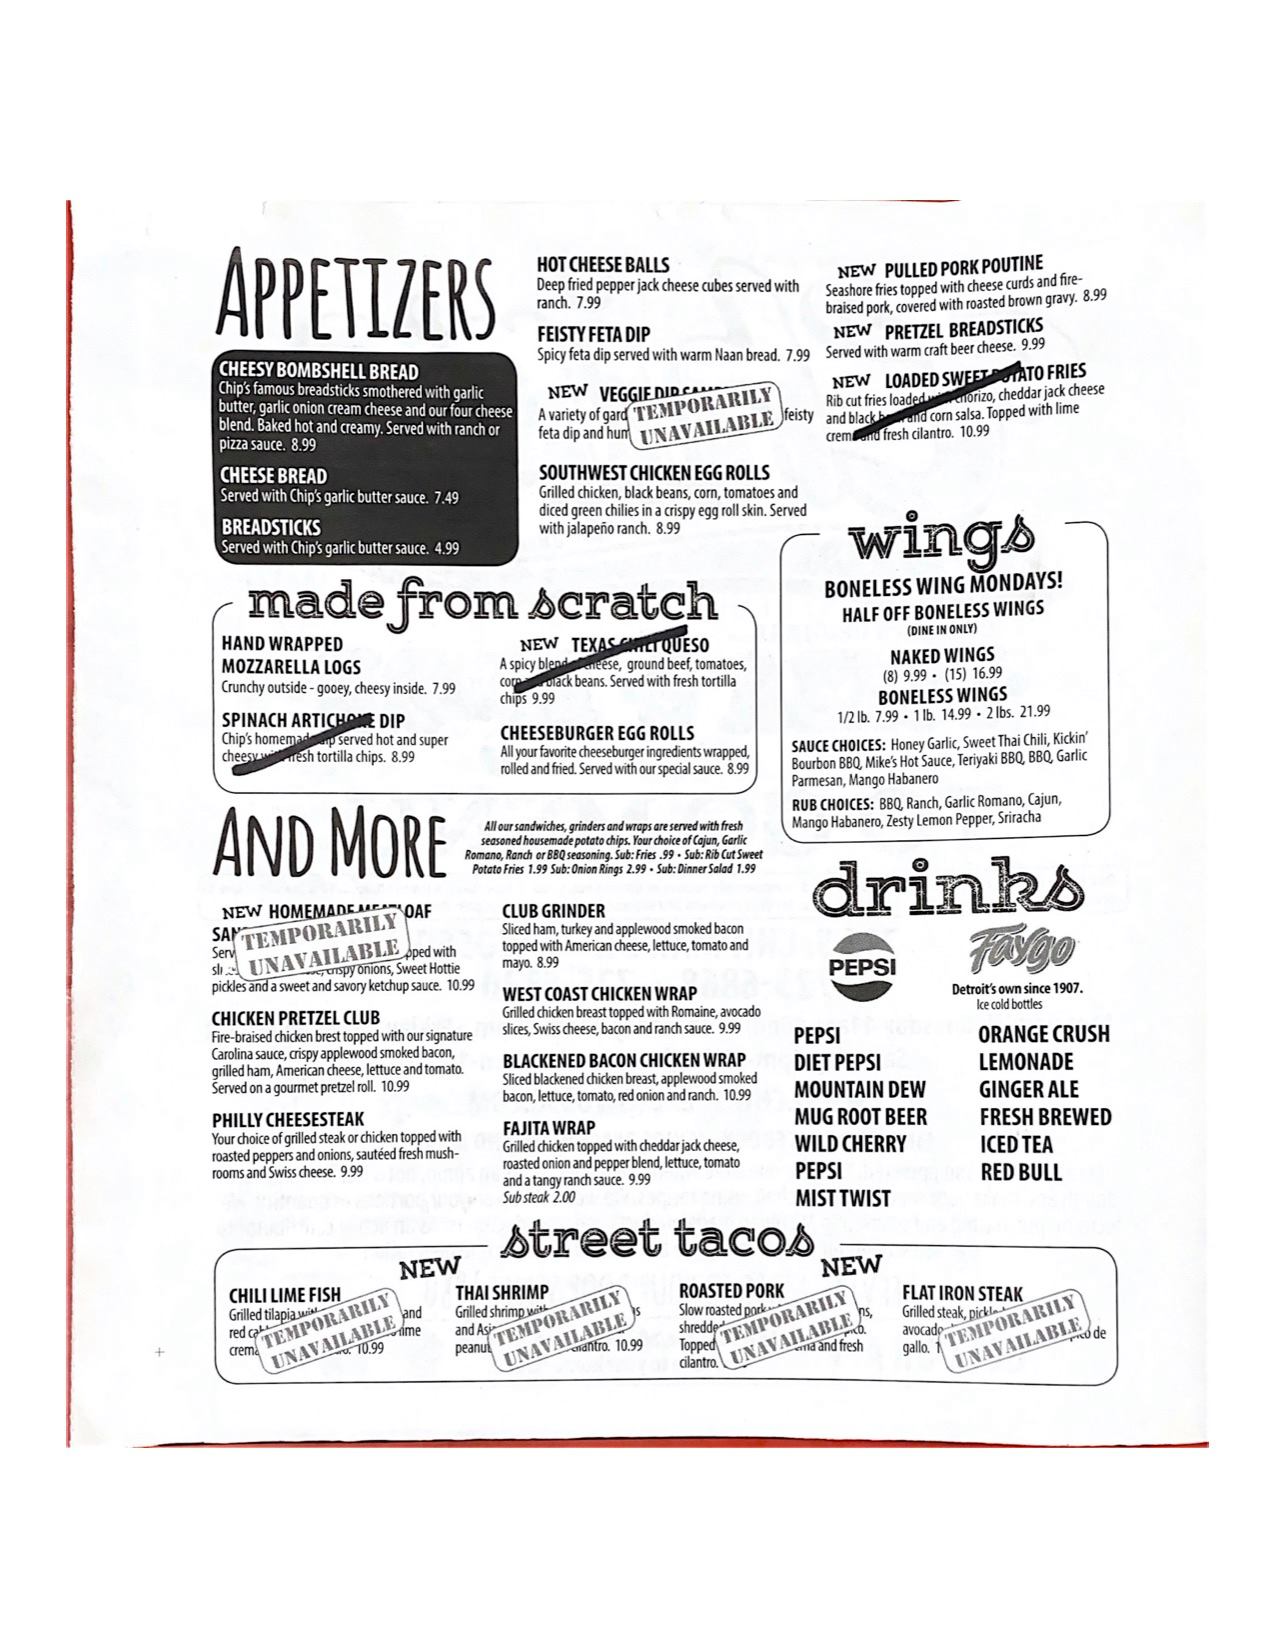 APPETIZERS
CHEESY BOMBSHELL BREAD
Chip's famous breadsticks smothered with garlic
butter, garlic onion cream cheese and our four cheese
blend. Baked hot and creamy. Served with ranch or
pizza sauce. 8.99
CHEESE BREAD
Served with Chip's garlic butter sauce. 7.49
BREADSTICKS
Served with Chip's garlic butter sauce. 4.99
HOT CHEESE BALLS
Deep fried pepper jack cheese cubes served with
ranch. 7.99
FEISTY FETA DIP
Spicy feta dip served with warm Naan bread. 7.99
NEW VEGGIE DIP
A variety of gard TEMPORARILY feisty
feta dip and hum UNAVAILABLE
SOUTHWEST CHICKEN EGG ROLLS
Grilled chicken, black beans, corn, tomatoes and
diced green chilies in a crispy egg roll skin. Served
with jalapeño ranch. 8.99
NEW PULLED PORK POUTINE
Seashore fries topped with cheese curds and fire-
braised pork, covered with roasted brown gravy. 8.99
NEW PRETZEL BREADSTICKS
Served with warm craft beer cheese. 9.99
NEW LOADED SWEET POTATO FRIES
Rib cut fries loaded with chorizo, cheddar jack cheese
and black bean and corn salsa. Topped with lime
crema and fresh cilantro. 10.99
made from scratch
HAND WRAPPED
MOZZARELLA LOGS
Crunchy outside - gooey, cheesy inside. 7.99
SPINACH ARTICHOKE DIP
Chip's homemade dip served hot and super
cheesy with fresh tortilla chips. 8.99
NEW TEXAS CHILI QUESO
A spicy blend of cheese, ground beef, tomatoes,
corn and black beans. Served with fresh tortilla
chips 9.99
CHEESEBURGER EGG ROLLS
All your favorite cheeseburger ingredients wrapped,
rolled and fried. Served with our special sauce. 8.99
wings
BONELESS WING MONDAYS!
HALF OFF BONELESS WINGS
(DINE IN ONLY)
NAKED WINGS
(8) 9.99 • (15) 16.99
BONELESS WINGS
1/2 lb. 7.99 • 1 lb. 14.99 • 2 lbs. 21.99
SAUCE CHOICES: Honey Garlic, Sweet Thai Chili, Kickin'
Bourbon BBQ, Mike's Hot Sauce, Teriyaki BBQ, BBQ, Garlic
Parmesan, Mango Habanero
RUB CHOICES: BBQ, Ranch, Garlic Romano, Cajun,
Mango Habanero, Zesty Lemon Pepper, Sriracha
AND MORE
All our sandwiches, grinders and wraps are served with fresh
seasoned housemade potato chips. Your choice of Cajun, Garlic
Romano, Ranch or BBQ seasoning. Sub: Fries .99 • Sub: Rib Cut Sweet
Potato Fries 1.99 Sub: Onion Rings 2.99 • Sub: Dinner Salad 1.99
NEW HOMEMADE MEATLOAF
SAN TEMPORARILY
Serv UNAVAILABLE pped with
crispy onions, Sweet Hottie
pickles and a sweet and savory ketchup sauce. 10.99
CHICKEN PRETZEL CLUB
Fire-braised chicken brest topped with our signature
Carolina sauce, crispy applewood smoked bacon,
grilled ham, American cheese, lettuce and tomato.
Served on a gourmet pretzel roll. 10.99
PHILLY CHEESESTEAK
Your choice of grilled steak or chicken topped with
roasted peppers and onions, sautéed fresh mush-
rooms and Swiss cheese. 9.99
CLUB GRINDER
Sliced ham, turkey and applewood smoked bacon
topped with American cheese, lettuce, tomato and
mayo. 8.99
WEST COAST CHICKEN WRAP
Grilled chicken breast topped with Romaine, avocado
slices, Swiss cheese, bacon and ranch sauce. 9.99
BLACKENED BACON CHICKEN WRAP
Sliced blackened chicken breast, applewood smoked
bacon, lettuce, tomato, red onion and ranch. 10.99
FAJITA WRAP
Grilled chicken topped with cheddar jack cheese,
roasted onion and pepper blend, lettuce, tomato
and a tangy ranch sauce. 9.99
Sub steak 2.00
drinks
PEPSI
Faygo
Detroit's own since 1907.
Ice cold bottles
PEPSI
DIET PEPSI
MOUNTAIN DEW
MUG ROOT BEER
WILD CHERRY
PEPSI
MIST TWIST
ORANGE CRUSH
LEMONADE
GINGER ALE
FRESH BREWED
ICED TEA
RED BULL
street tacos
NEW
NEW
CHILI LIME FISH
Grilled tilapia and
red TEMPORARILY lime
crem UNAVAILABLE 10.99
THAI SHRIMP
Grilled shrimp with
and TEMPORARILY
peanut UNAVAILABLE cilantro. 10.99
ROASTED PORK
Slow roasted pork
TEMPORARILY
Topped UNAVAILABLE and fresh
cilantro.
FLAT IRON STEAK
Grilled steak, pickle
avocado TEMPORARILY de
gallo. UNAVAILABLE